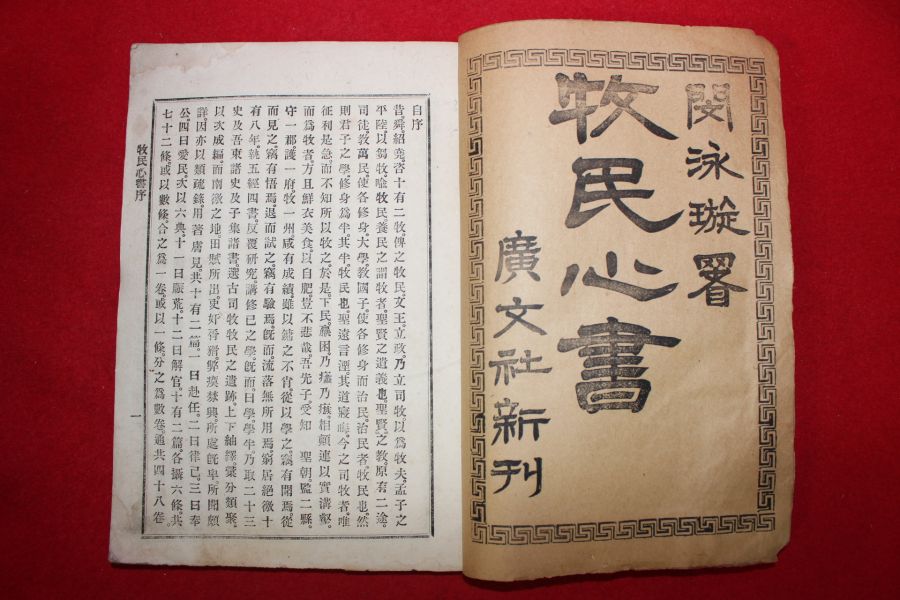 閔泳璇署
牧民心書
廣文社新刊
自序
昔舜紹堯。咨十有二牧。俾之牧民。文王立政。乃立司牧。以爲牧夫。孟子之
平陸。以芻牧喩牧民。養民之謂牧者。聖賢之遺義也。聖賢之敎。原有二途。
司徒敎萬民。使各修身。大學敎國子。使各修身而治民。治民者。牧民也。然
則君子之學。修身爲半。其半牧民也。聖遠言湮。其道寢晦。今之司牧者。唯
征利是急。而不知所以牧之。於是。下民羸困。乃瘰乃瘯。相顚連以實溝壑。
而爲牧者。方且鮮衣美食。以自肥。豈不悲哉。吾先子。受知 聖朝。監二縣。
守一郡。護一府。牧一州。咸有成績。雖以鏞之不肖。從以學之。竊有聞焉。從
而見之。竊有悟焉。退而試之。竊有驗焉。旣而。流落無所用焉。窮居絕徼十
有八年。執五經四書。反覆硏究。講修己之學。旣而。曰學學半。乃取二十三
史及吾東諸史及子集諸書。選古司牧牧民之遺跡。上下紬繹。彙分類聚。
以次成編。而南徼之地。田賦所出。吏奸胥猾。弊瘼棼興。所處旣卑。所聞頗
詳。因亦以類疏錄。用著膚見。共十有二篇。一曰赴任。二曰律己。三曰奉
公。四曰愛民。次以六典。十一曰賑荒。十二曰解官。十有二篇。各攝六條。共
七十二條。或以數條。合之爲一卷。或以一條。分之爲數卷。通共四十八卷。
牧民心書序
一